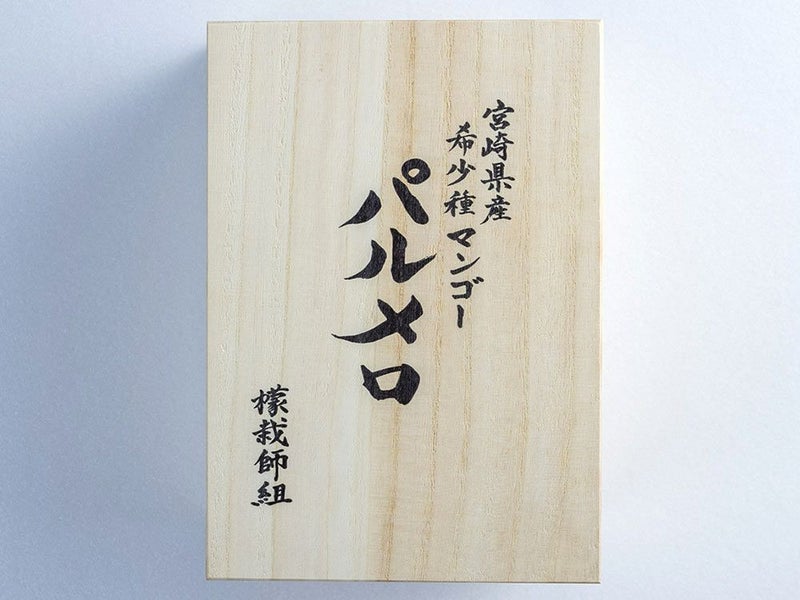 宮崎県産
希少種マンゴー
パルメロ
檬栽師組